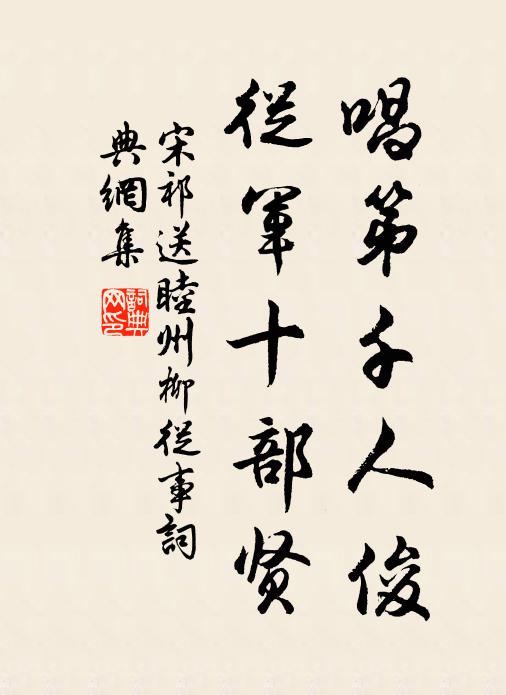 唱第千人俊
從軍十部贤
宋祁送睦州柳從事詞
典網集
詞典
网印